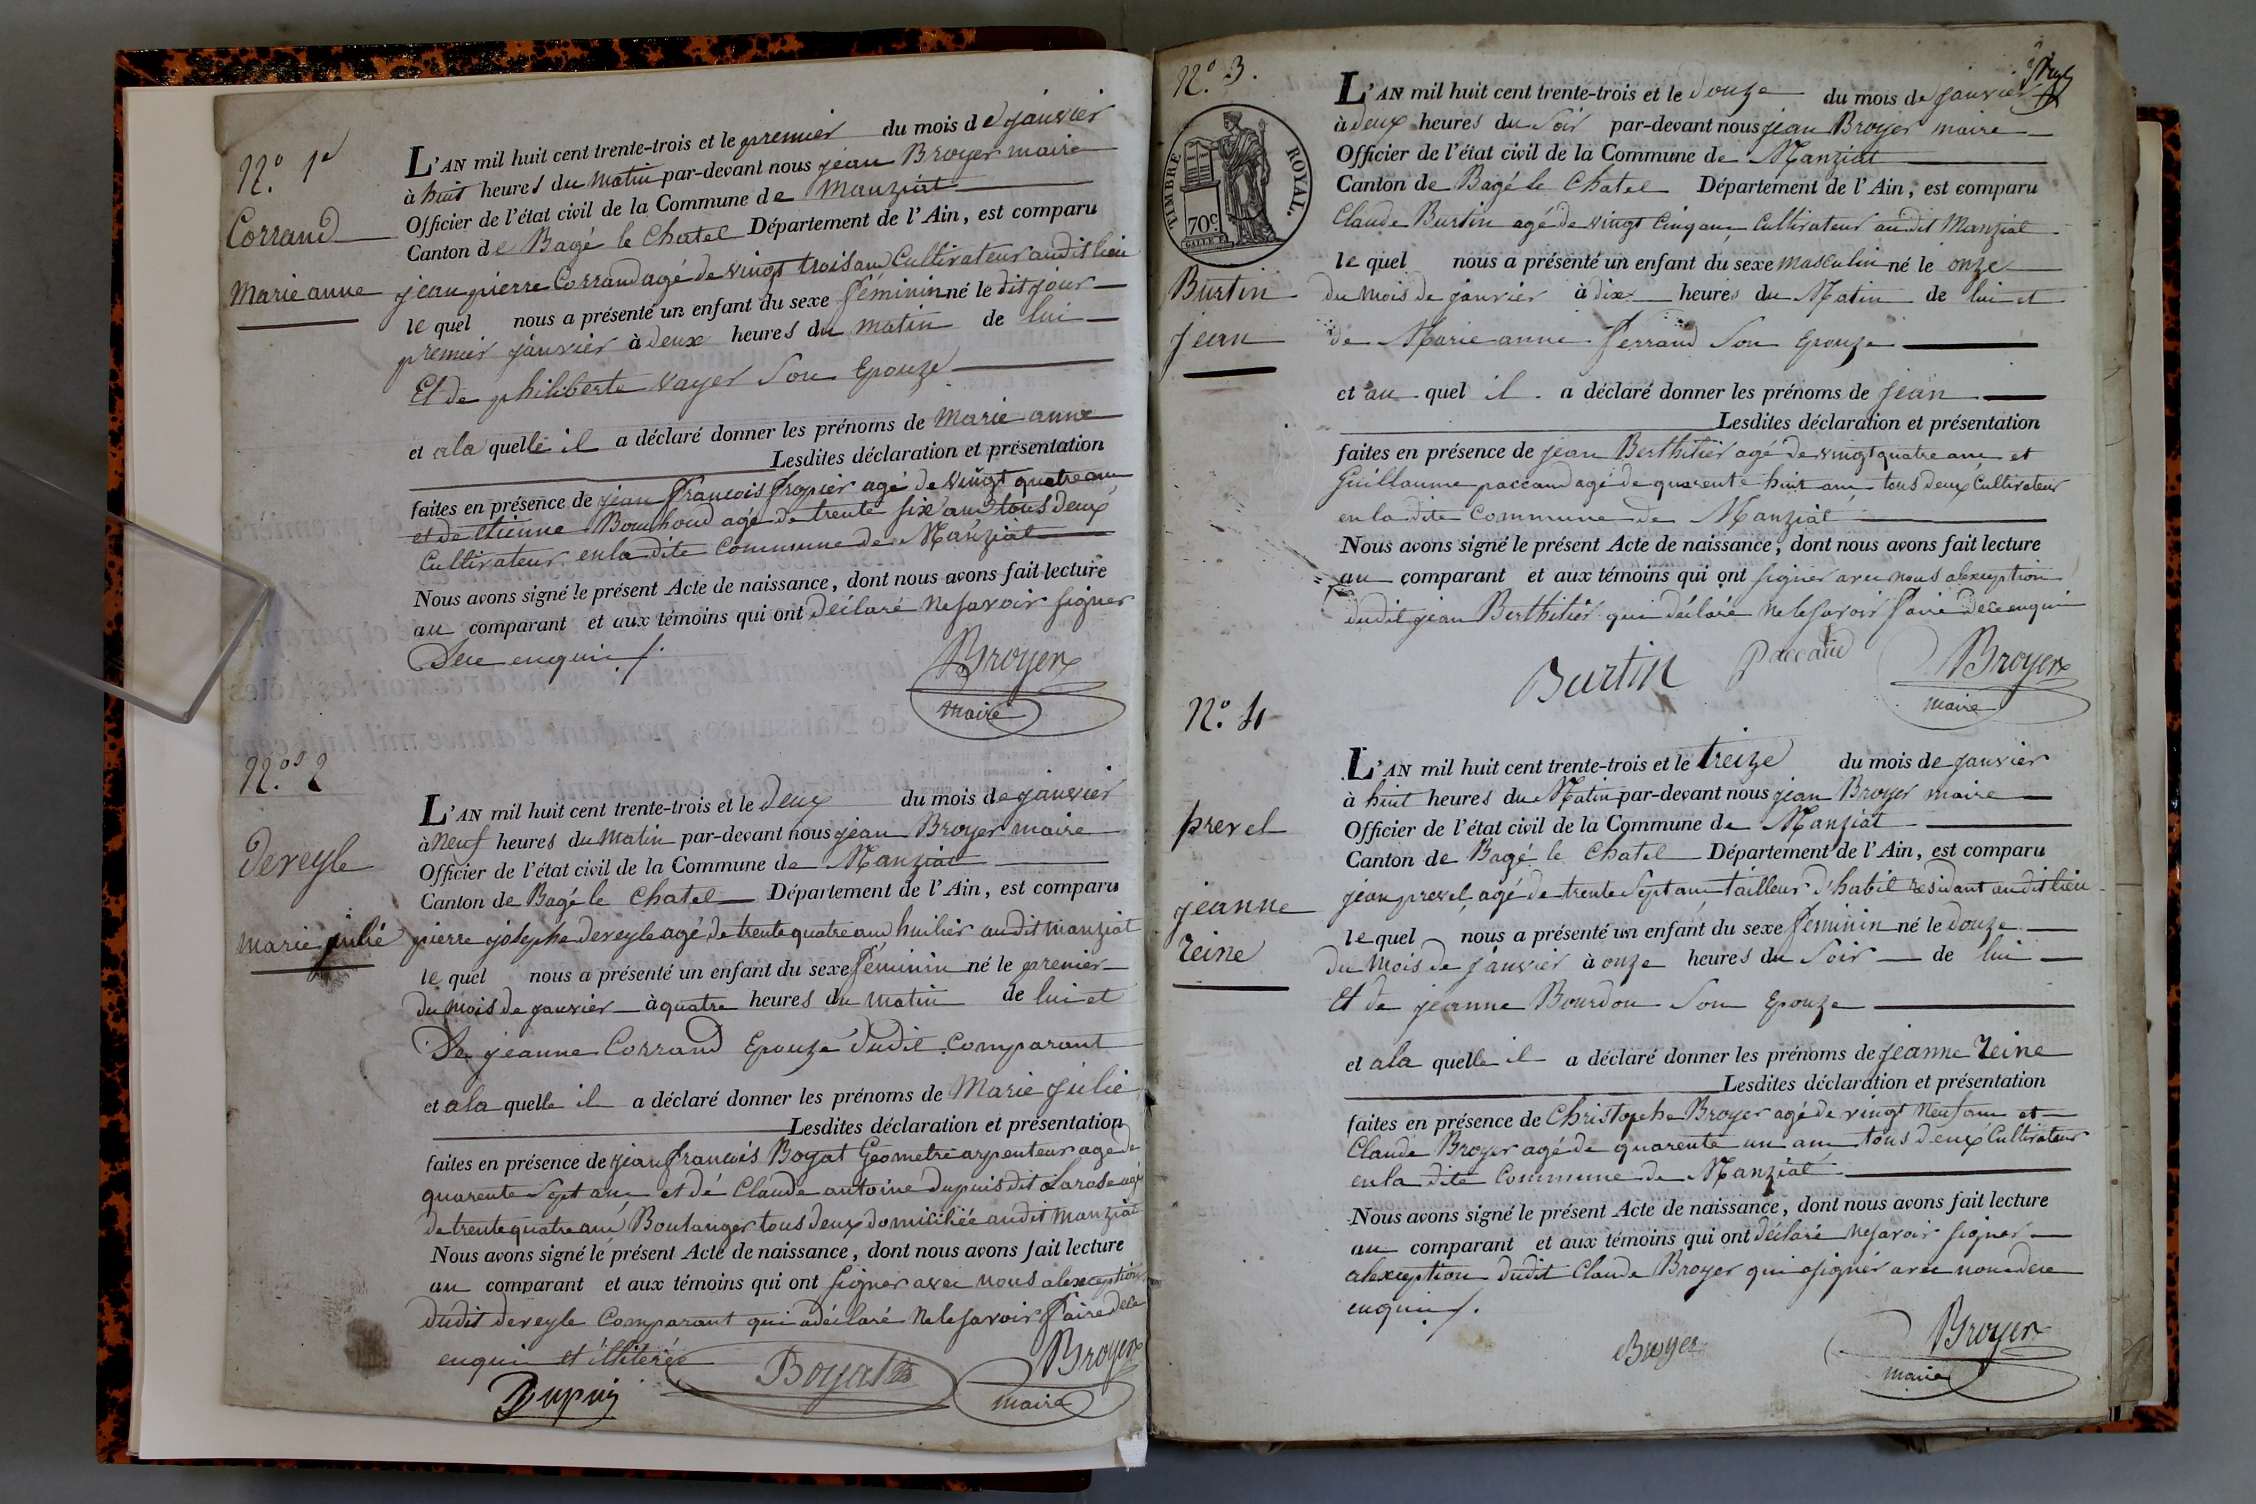 N.º 1er
Corrand
Marie anne
L'AN mil huit cent trente-trois et le premier du mois de janvier
à huit heures du matin par-devant nous jean Broyer maire
Officier de l'état civil de la Commune de Manziat
Canton de Bagé le Chatel Département de l'Ain, est comparu
jean pierre Corrand agé de vingt trois ans Cultivateur audit lieu
le quel nous a présenté un enfant du sexe féminin né le dit jour
premier janvier à deux heures du matin de lui
Et de philiberte vayer Son Epouze
et ala quelle il a déclaré donner les prénoms de Marie anne
Lesdites déclaration et présentation
faites en présence de jean francois agé de vingt quatre ans
et de Etienne Bouchoud agé de trente six ans tous deux
Cultivateur en la dite Commune de Manziat
Nous avons signé le présent Acte de naissance, dont nous avons fait lecture
au comparant et aux témoins qui ont déclaré ne savoir signer
Dece enquis ./.
Broyer
maire
N.os 2
Dereyle
Marie julie
L'AN mil huit cent trente-trois et le deux du mois de janvier
à Neuf heures du matin par-devant nous jean Broyer maire
Officier de l'état civil de la Commune de Manziat
Canton de Bagé le Chatel Département de l'Ain, est comparu
pierre joseph dereyle agé de trente quatre ans huilier audit manziat
le quel nous a présenté un enfant du sexe féminin né le premier
du mois de janvier à quatre heures du matin de lui et
De jeanne Corrand Epouze dudit Comparant
et ala quelle il a déclaré donner les prénoms de Marie julie
Lesdites déclaration et présentation
faites en présence de jean francois Boyat Géometre arpenteur age de
quarente Sept ans et de Claude antoine dupuis dit Larose agé
de trente quatre ans Boulanger tous deux domiciliée audit manziat
Nous avons signé le présent Acte de naissance, dont nous avons fait lecture
au comparant et aux témoins qui ont signer avec nous alexception
dudit dereyle Comparant qui adéclaré Ne le savoir faire dece
enquis et illiterée
Dupuis
Boyat
Broyer
maire
N.º 3.
TIMBRE ROYAL.
70c.
Burtin
jean
L'AN mil huit cent trente-trois et le douze du mois de janvier
à deux heures du Soir par-devant nous jean Broyer maire
Officier de l'état civil de la Commune de Manziat
Canton de Bagé le Chatel Département de l'Ain, est comparu
Claude Burtin agé de vingt cinq ans Cultivateur audit Manziat
le quel nous a présenté un enfant du sexe masculin né le onze
du mois de janvier à dix heures du Matin de lui et
de Marie anne ferrand Son Epouze
et au quel il a déclaré donner les prénoms de jean
Lesdites déclaration et présentation
faites en présence de jean Berthilier agé de vingt quatre ans et
Guillaume paccaud agé de quarente huit ans tous deux Cultivateur
en la dite Commune de Manziat
Nous avons signé le présent Acte de naissance, dont nous avons fait lecture
au comparant et aux témoins qui ont signer avec nous alexception
dudit jean Berthilier qui déclaré Ne le savoir faire dece enquis
Burtin
Paccaud
Broyer
maire
N.º 4
prevel
jeanne
reine
L'AN mil huit cent trente-trois et le treize du mois de janvier
à huit heures du Matin par-devant nous jean Broyer maire
Officier de l'état civil de la Commune de Manziat
Canton de Bagé le Chatel Département de l'Ain, est comparu
jean prevel agé de trente Sept ans tailleur d'habit residant audit lieu
le quel nous a présenté un enfant du sexe féminin né le douze
du mois de janvier à onze heures du Soir de lui
Et de jeanne Bourdon Son Epouze
et ala quelle il a déclaré donner les prénoms de jeanne reine
Lesdites déclaration et présentation
faites en présence de Christophe Broyer agé de vingt Neuf ans et
Claude Broyer agé de quarente un ans tous deux Cultivateur
en la dite Commune de Manziat
Nous avons signé le présent Acte de naissance, dont nous avons fait lecture
au comparant et aux témoins qui ont déclaré Ne savoir signer
alexception dudit Claude Broyer qui asigner avec nous dece
enquis ./.
Broyer
Broyer
maire